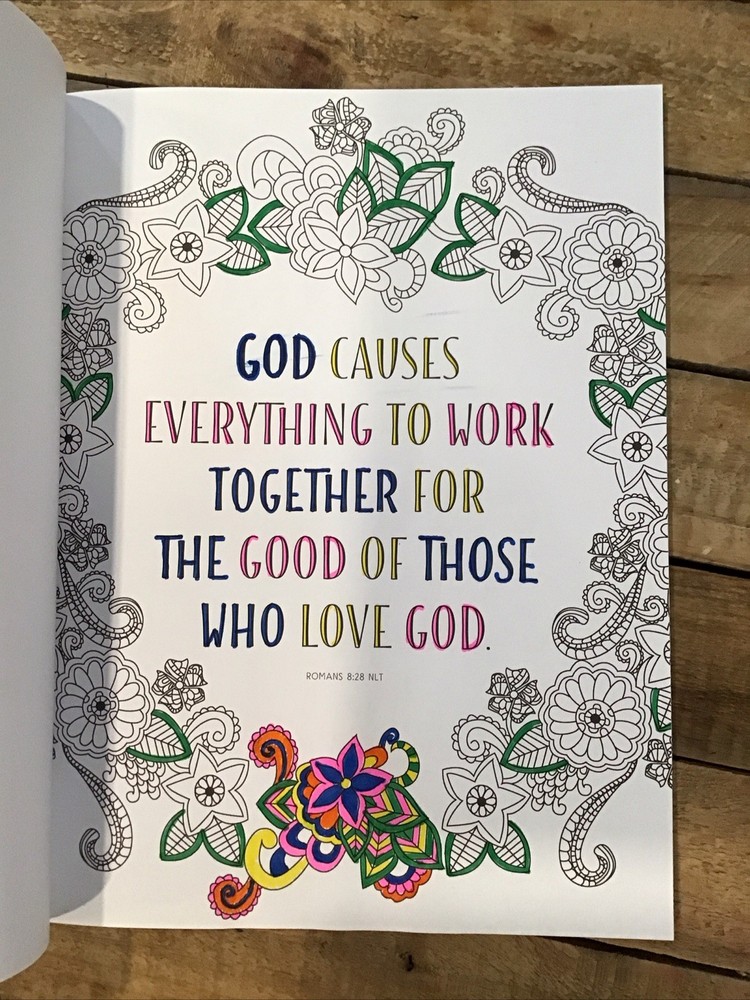 GOD CAUSES
EVERYTHING TO WORK
TOGETHER FOR
THE GOOD OF THOSE
WHO LOVE GOD.
ROMANS 8:28 NLT